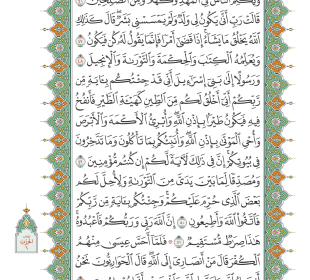 قَالَتْ رَبِّ أَنَّىٰ يَكُونُ لِى وَلَدٌ وَلَمْ يَمْسَسْنِى بَشَرٌ قَالَ كَذَٰلِكِ
ٱللَّهُ يَخْلُقُ مَا يَشَآءُ إِذَا قَضَىٰٓ أَمْرًا فَإِنَّمَا يَقُولُ لَهُۥ كُن فَيَكُونُ ٤٧
وَيُعَلِّمُهُ ٱلْكِتَٰبَ وَٱلْحِكْمَةَ وَٱلتَّوْرَىٰةَ وَٱلْإِنجِيلَ ٤٨
وَرَسُولًا إِلَىٰ بَنِىٓ إِسْرَٰٓءِيلَ أَنِّى قَدْ جِئْتُكُم بِـَٔايَةٍ مِّن
رَّبِّكُمْ أَنِّىٓ أَخْلُقُ لَكُم مِّنَ ٱلطِّينِ كَهَيْـَٔةِ ٱلطَّيْرِ فَأَنفُخُ
فِيهِ فَيَكُونُ طَيْرًۢا بِإِذْنِ ٱللَّهِ وَأُبْرِئُ ٱلْأَكْمَهَ وَٱلْأَبْرَصَ
وَأُحْىِ ٱلْمَوْتَىٰ بِإِذْنِ ٱللَّهِ وَأُنَبِّئُكُم بِمَا تَأْكُلُونَ وَمَا تَدَّخِرُونَ
فِى بُيُوتِكُمْ إِنَّ فِى ذَٰلِكَ لَـَٔايَةً لَّكُمْ إِن كُنتُم مُّؤْمِنِينَ ٤٩
وَمُصَدِّقًا لِّمَا بَيْنَ يَدَىَّ مِنَ ٱلتَّوْرَىٰةِ وَلِأُحِلَّ لَكُم
بَعْضَ ٱلَّذِى حُرِّمَ عَلَيْكُمْ وَجِئْتُكُم بِـَٔايَةٍ مِّن رَّبِّكُمْ
فَٱتَّقُوا۟ ٱللَّهَ وَأَطِيعُونِ ٥٠ إِنَّ ٱللَّهَ رَبِّى وَرَبُّكُمْ فَٱعْبُدُوهُ
هَٰذَا صِرَٰطٌ مُّسْتَقِيمٌ ٥١ فَلَمَّآ أَحَسَّ عِيسَىٰ مِنْهُمُ
ٱلْكُفْرَ قَالَ مَنْ أَنصَارِىٓ إِلَى ٱللَّهِ قَالَ ٱلْحَوَارِيُّونَ نَحْنُ